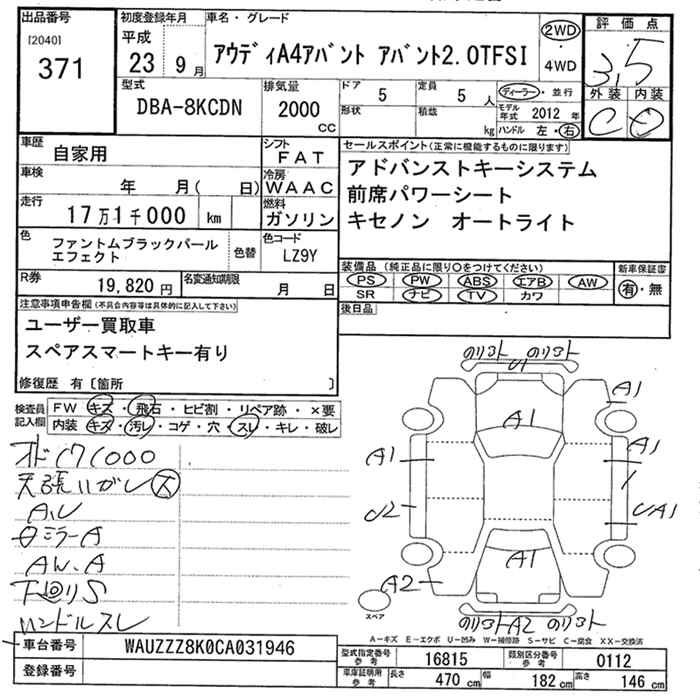 出品番号
[2040]
371
初度登録年月
平成
23 9 月
車名・グレード
アウディA4アバント アバント2.0TFSI
2WD
・
4WD
評価点
3.5
外装 内装
C
型式
DBA-8KCDN
排気量
2000
CC
ドア 5
定員 5 人
形状
積載 kg
ディーラー・並行
モデル年式 2012 年
ハンドル 左・右
車歴 自家用
シフト FAT
車検 年 月( 日)
冷房 WAAC
走行 17万1千000 km
燃料 ガソリン
色 ファントムブラックパールエフェクト
色替
色コード LZ9Y
R券 19,820 円
名変通知期限 月 日
セールスポイント(正常に機能するものに限ります)
アドバンストキーシステム
前席パワーシート
キセノン オートライト
装備品(純正品に限り○をつけてください)
PS PW ABS エアB AW
SR ナビ TV カワ
新車保証書
有・無
後日品
注意事項申告欄(不具合内容等は具体的に記入して下さい)
ユーザー買取車
スペアスマートキー有り
修復歴 有〔箇所 〕
検査員記入欄
FW キズ・飛石・ヒビ割・リペア跡・×要
内装 キズ・汚レ・コゲ・穴・スレ・キレ・破レ
天張ハガレ大
ミラーA
AW.A
下回りS
ハンドルスレ
A1
A1
A1
A1
A1
A1
A2
A2
スペア
A-キズ E-エクボ U-凹み W-補修跡 S-サビ C-腐食 XX-交換済
車台番号 WAUZZZ8K0CA031946
登録番号
型式指定番号参考 16815
類別区分番号参考 0112
車庫証明用参考 長さ 470 cm 幅 182 cm 高さ 146 cm